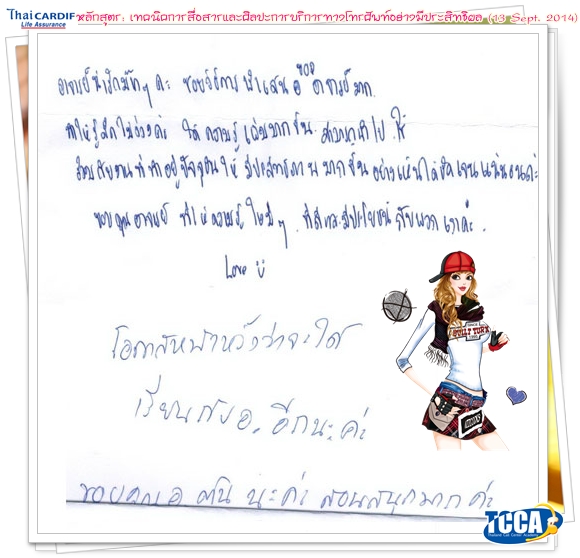 ThaiCARDIF
Life Assurance
หลักสูตร: เทคนิคการสื่อสารและศิลปะการบริการทางโทรศัพท์อย่างมีประสิทธิผล (13 Sept. 2014)
อาจารย์น่ารักมากๆ ค่ะ ชอบวิธีการนำเสนอของอาจารย์มาก
ทำให้รู้สึกไม่ง่วงค่ะ ได้ความรู้เพิ่มมากขึ้น สามารถนำไปใช้
กับงานที่ทำอยู่ปัจจุบันให้มีประสิทธิภาพมากขึ้นอย่างเห็นได้ชัดเจนแน่นอนค่ะ
ขอบคุณอาจารย์ ที่ให้ความรู้ใหม่ๆ ที่ดีและมีประโยชน์กับพวกเราค่ะ.
Love
โอกาสหน้าหวังว่าจะได้
เรียนกับอ. อีกนะค่ะ
ขอบคุณอ นะค่ะ สอนสนุกมากค่ะ
GUILT YORK
TCCA
Thailand Call Center Academy